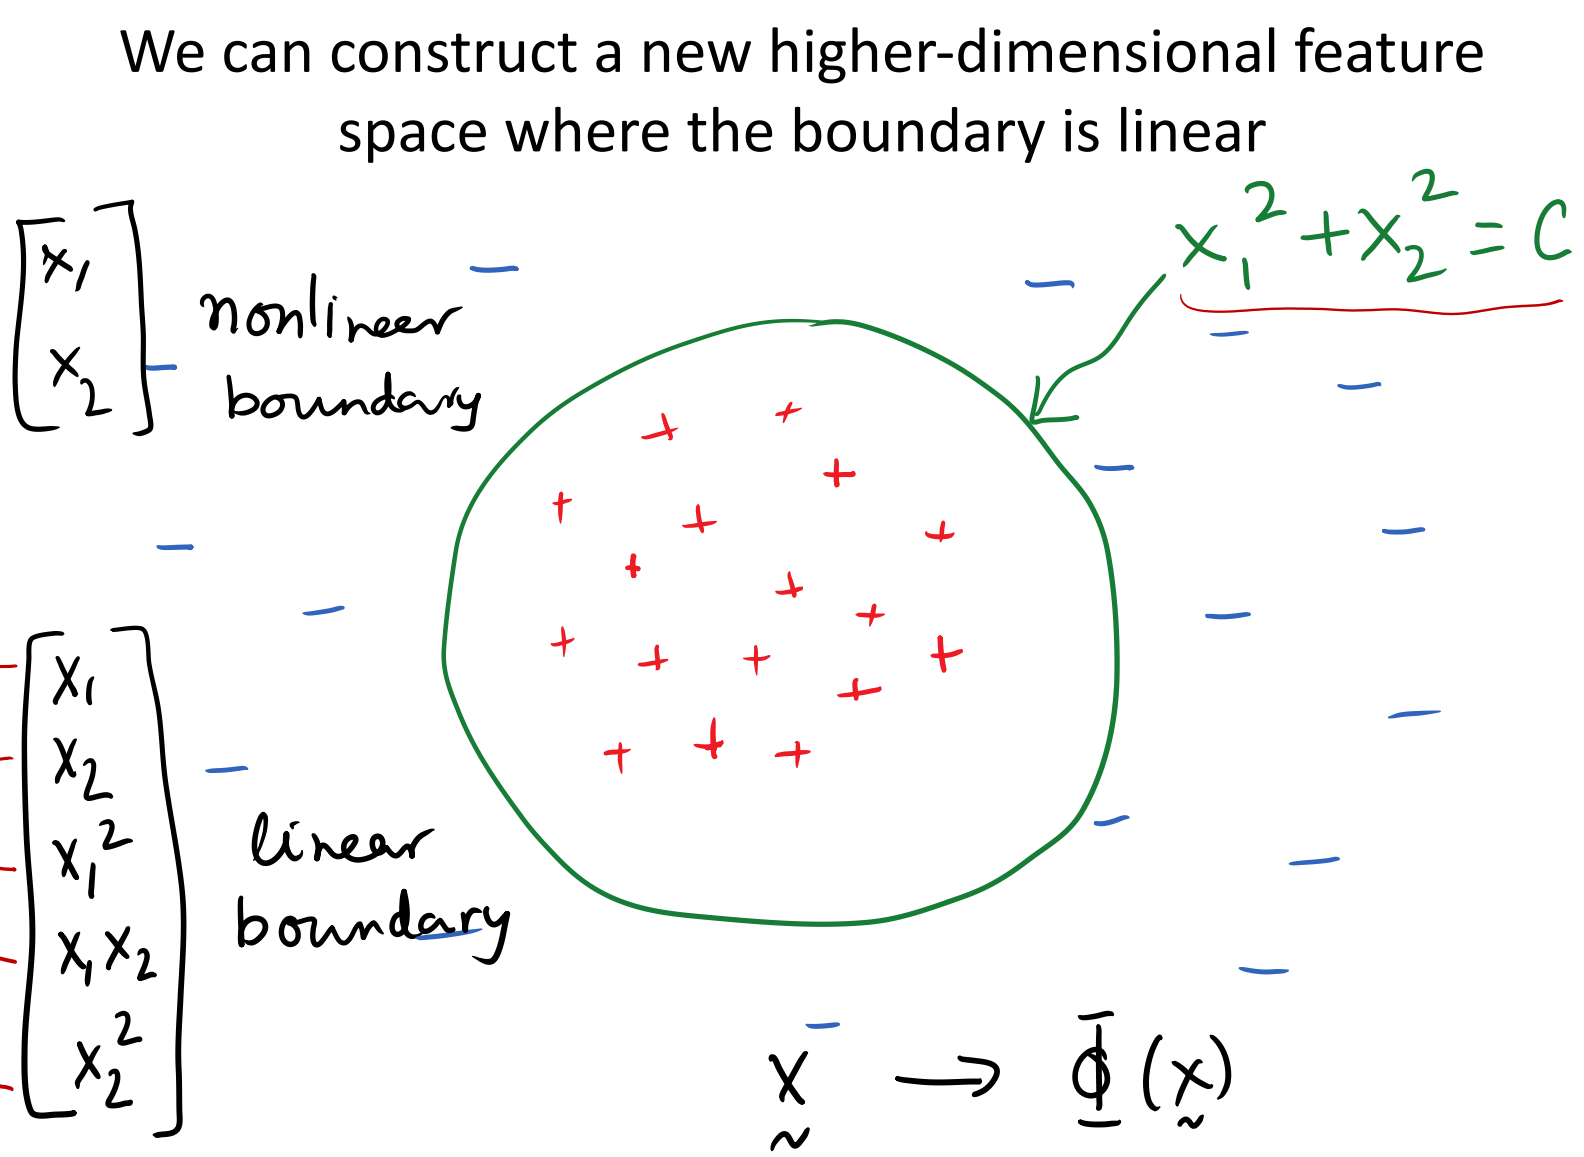 We can construct a new higher-dimensional feature
space where the boundary is linear
x₁² + x₂² = C
x₁
x₂
nonlinear
boundary
x₁
x₂
x₁²
x₁x₂
x₂²
linear
boundary
x → Φ(x)